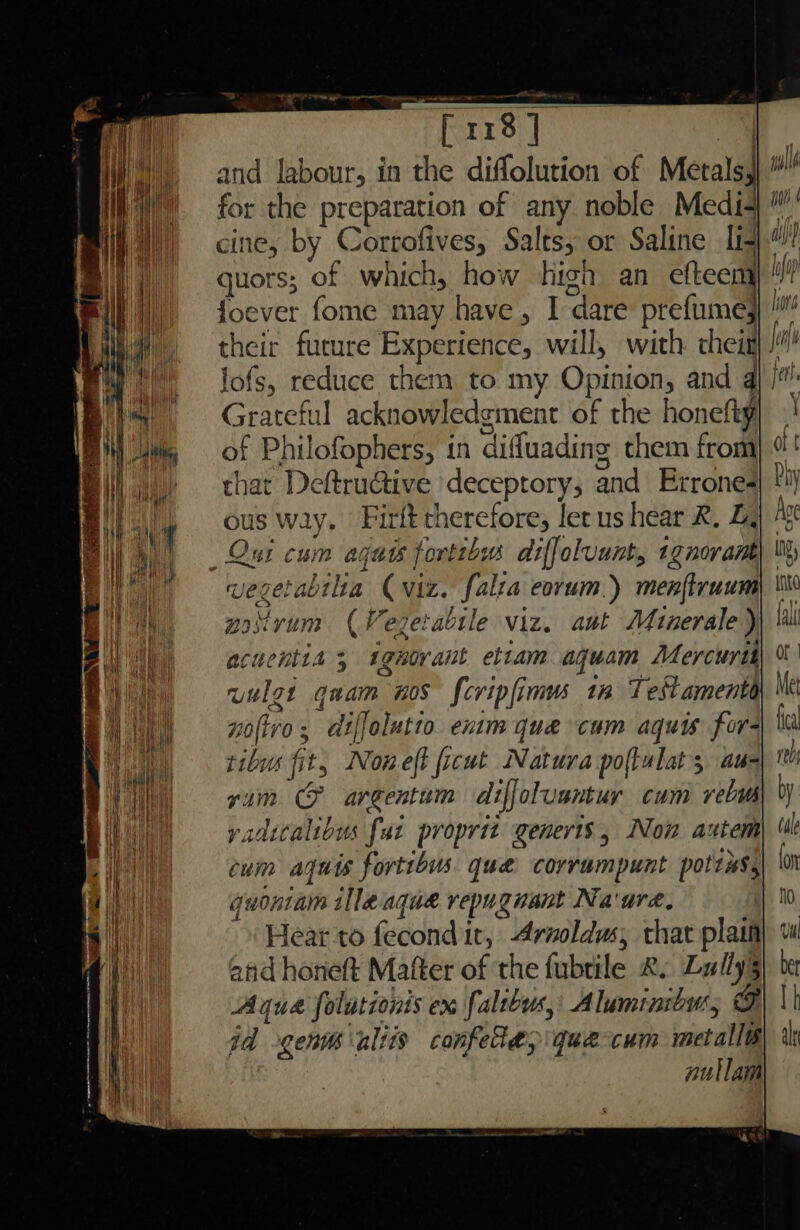 [ 118 ]
and labour, in the diſſolution of Metals,
for the preparation of any noble Medi-
cine, by Corroſives, Salts, or Saline li-
quors; of which, how high an eſteem
ſoever ſome may have, I dare preſume,
their future Experience, will, with their
loſs, reduce them to my Opinion, and a
Grateful acknowledgment of the honeſty
of Philoſophers, in diſſuading them from
that Deſtructive deceptory, and Errone-
ous way. Firſt therefore, let us hear R. L.
Qui cum aquis fortibus diſſolvunt, ignorant
vegetabilia (viz. ſalia eorum.) menſtruum
noſtrum (Vegetabile viz. aut Minerale)
acuentia; ignorant etiam aquam Mercurii
vulgi quam nos ſcripſimus in Teſtamento
noſtro; diſſolutio enim quæ cum aquis for-
tibus fit, Non eſt ſicut Natura poſtulat; au-
rum & argentum diſſolvuntur cum rebus
radicalibus ſui proprii generis, Non autem
cum aquis fortibus quæ corrumpunt potius,
quoniam illæ aquæ repugnant Naturæ.
Hear to ſecond it, Arnoldus, that plain
and honeſt Maſter of the ſubtile R. Lully's
Aquæ ſolutionis ex ſalibus, Aluminibus, &
id genus aliis confectæ, quæ cum metallis
nullam